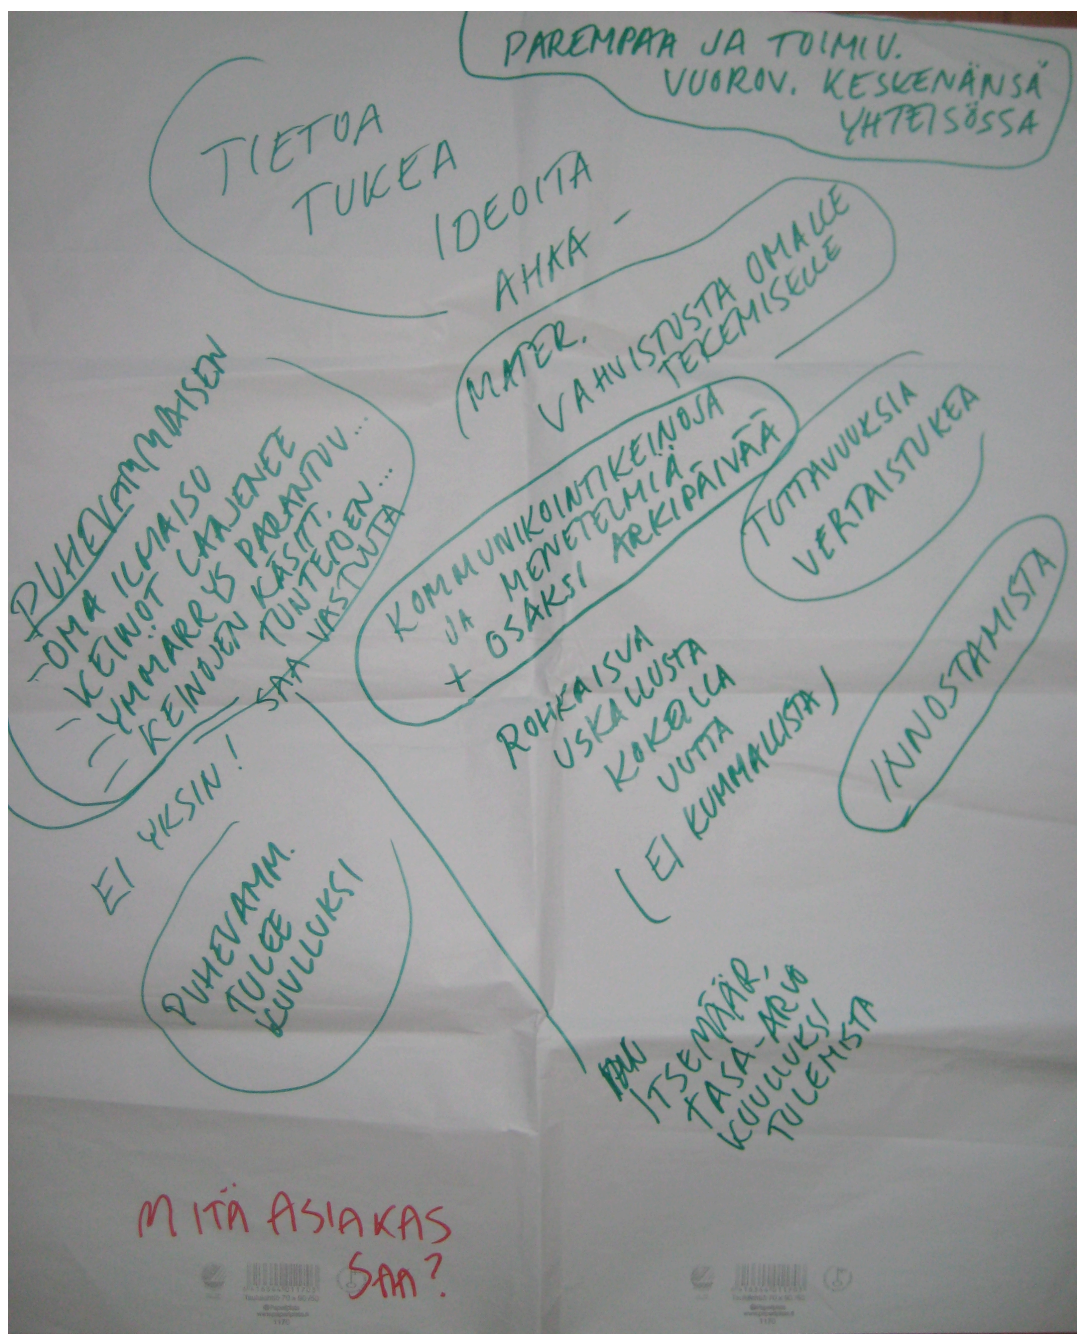 PAREMPAA JA TOIMIV.
VUOROV. KESKENÄNSÄ
YHTEISÖSSA
TIETOA
TUKEA
IDEOITA
AHAA -
MATER.
VAHVISTUSTA OMALLE
TEKEMISELLE
PUHEVAMMAISEN
- OMA ILMAISU
KEINOT LAAJENEE
- YMMÄRRYS PARANTUU....
- KEINOJEN KÄSIT.
- TUNTEIDEN...
SAA VASTUUTA
KOMMUNIKOINTIKEINOJA
JA MENETELMIÄ
+ OSAKSI ARKIPÄIVÄÄ
TUTTAVUUKSIA
VERTAISTUKEA
ROHKAISUA
USKALLUSTA
KOKEILLA
UUTTA
(EI KUMMALLISTA)
INNOSTAMISTA
EI YKSIN!
PUHEVAMM.
TULEE
KUULLUKSI
ITSEMÄÄR,
TASA-ARVO
KUULLUKSI
TULEMISTA
MITÄ ASIAKAS
SAA?